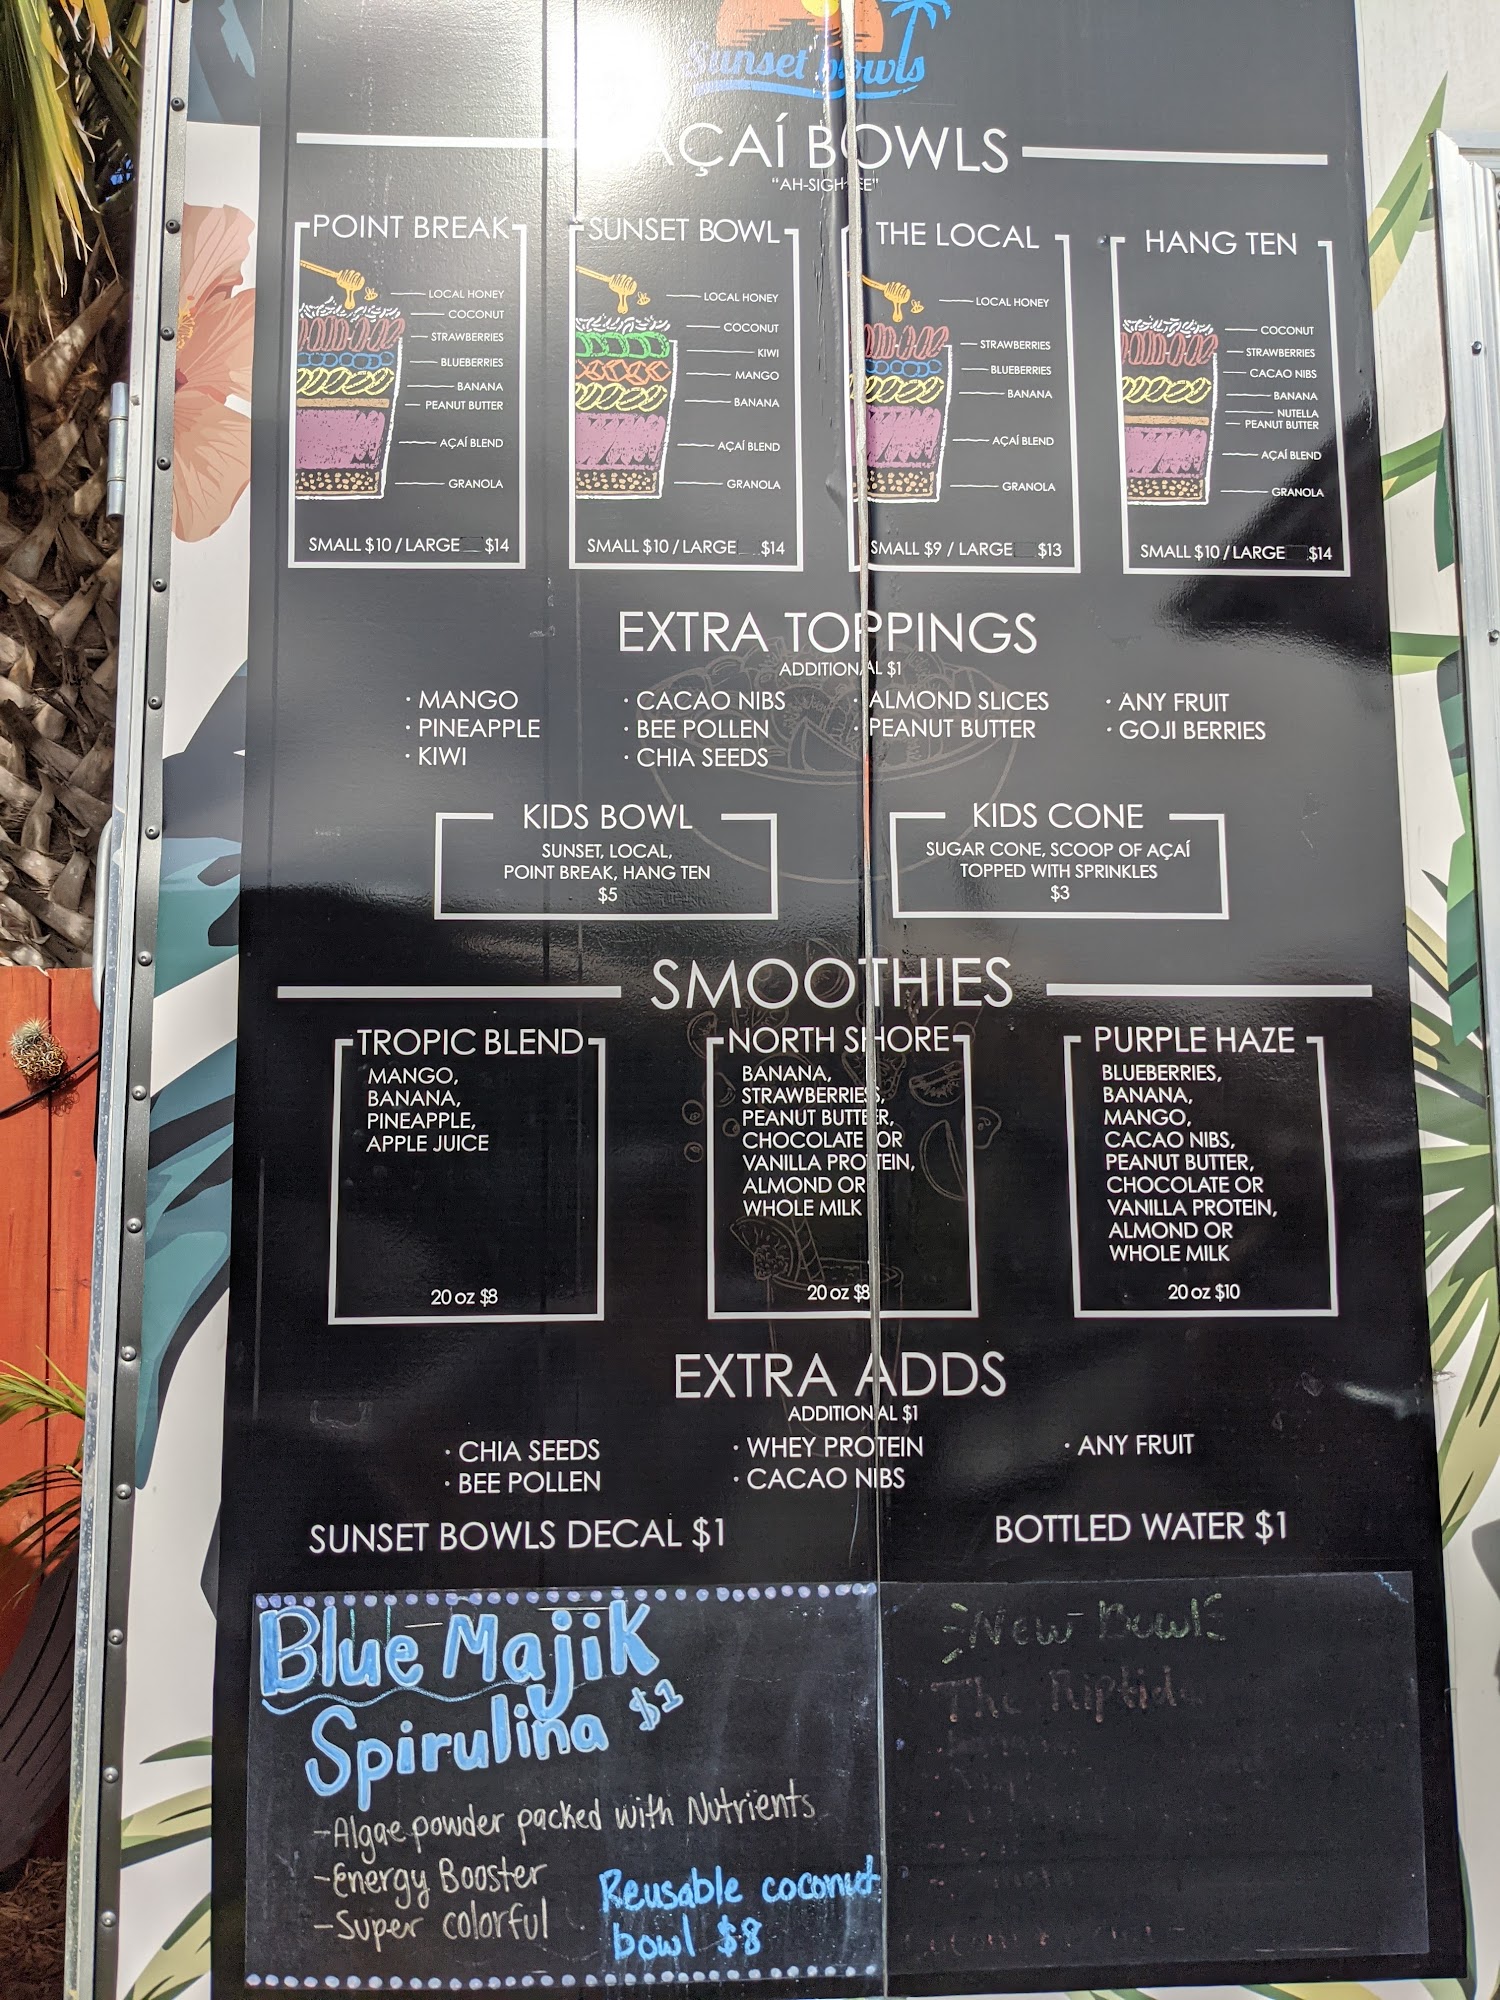 Sunset bowls
AÇAÍ BOWLS
"AH-SIGH-EE"
POINT BREAK
LOCAL HONEY
COCONUT
STRAWBERRIES
BLUEBERRIES
BANANA
PEANUT BUTTER
AÇAÍ BLEND
GRANOLA
SMALL $10 / LARGE $14
SUNSET BOWL
LOCAL HONEY
COCONUT
KIWI
MANGO
BANANA
AÇAÍ BLEND
GRANOLA
SMALL $10 / LARGE $14
THE LOCAL
LOCAL HONEY
STRAWBERRIES
BLUEBERRIES
BANANA
AÇAÍ BLEND
GRANOLA
SMALL $9 / LARGE $13
HANG TEN
COCONUT
STRAWBERRIES
CACAO NIBS
BANANA
NUTELLA
PEANUT BUTTER
AÇAÍ BLEND
GRANOLA
SMALL $10 / LARGE $14
EXTRA TOPPINGS
ADDITIONAL $1
· MANGO
· PINEAPPLE
· KIWI
· CACAO NIBS
· BEE POLLEN
· CHIA SEEDS
· ALMOND SLICES
· PEANUT BUTTER
· ANY FRUIT
· GOJI BERRIES
KIDS BOWL
SUNSET, LOCAL,
POINT BREAK, HANG TEN
$5
KIDS CONE
SUGAR CONE, SCOOP OF AÇAÍ
TOPPED WITH SPRINKLES
$3
SMOOTHIES
TROPIC BLEND
MANGO,
BANANA,
PINEAPPLE,
APPLE JUICE
20 oz $8
NORTH SHORE
BANANA,
STRAWBERRIES,
PEANUT BUTTER,
CHOCOLATE OR
VANILLA PROTEIN,
ALMOND OR
WHOLE MILK
20 oz $8
PURPLE HAZE
BLUEBERRIES,
BANANA,
MANGO,
CACAO NIBS,
PEANUT BUTTER,
CHOCOLATE OR
VANILLA PROTEIN,
ALMOND OR
WHOLE MILK
20 oz $10
EXTRA ADDS
ADDITIONAL $1
· CHIA SEEDS
· BEE POLLEN
· WHEY PROTEIN
· CACAO NIBS
· ANY FRUIT
SUNSET BOWLS DECAL $1
BOTTLED WATER $1
Blue Majik
Spirulina $1
- Algae powder packed with Nutrients
- Energy Booster
- Super colorful
Reusable coconut
bowl $8
New Bowl
The Riptide